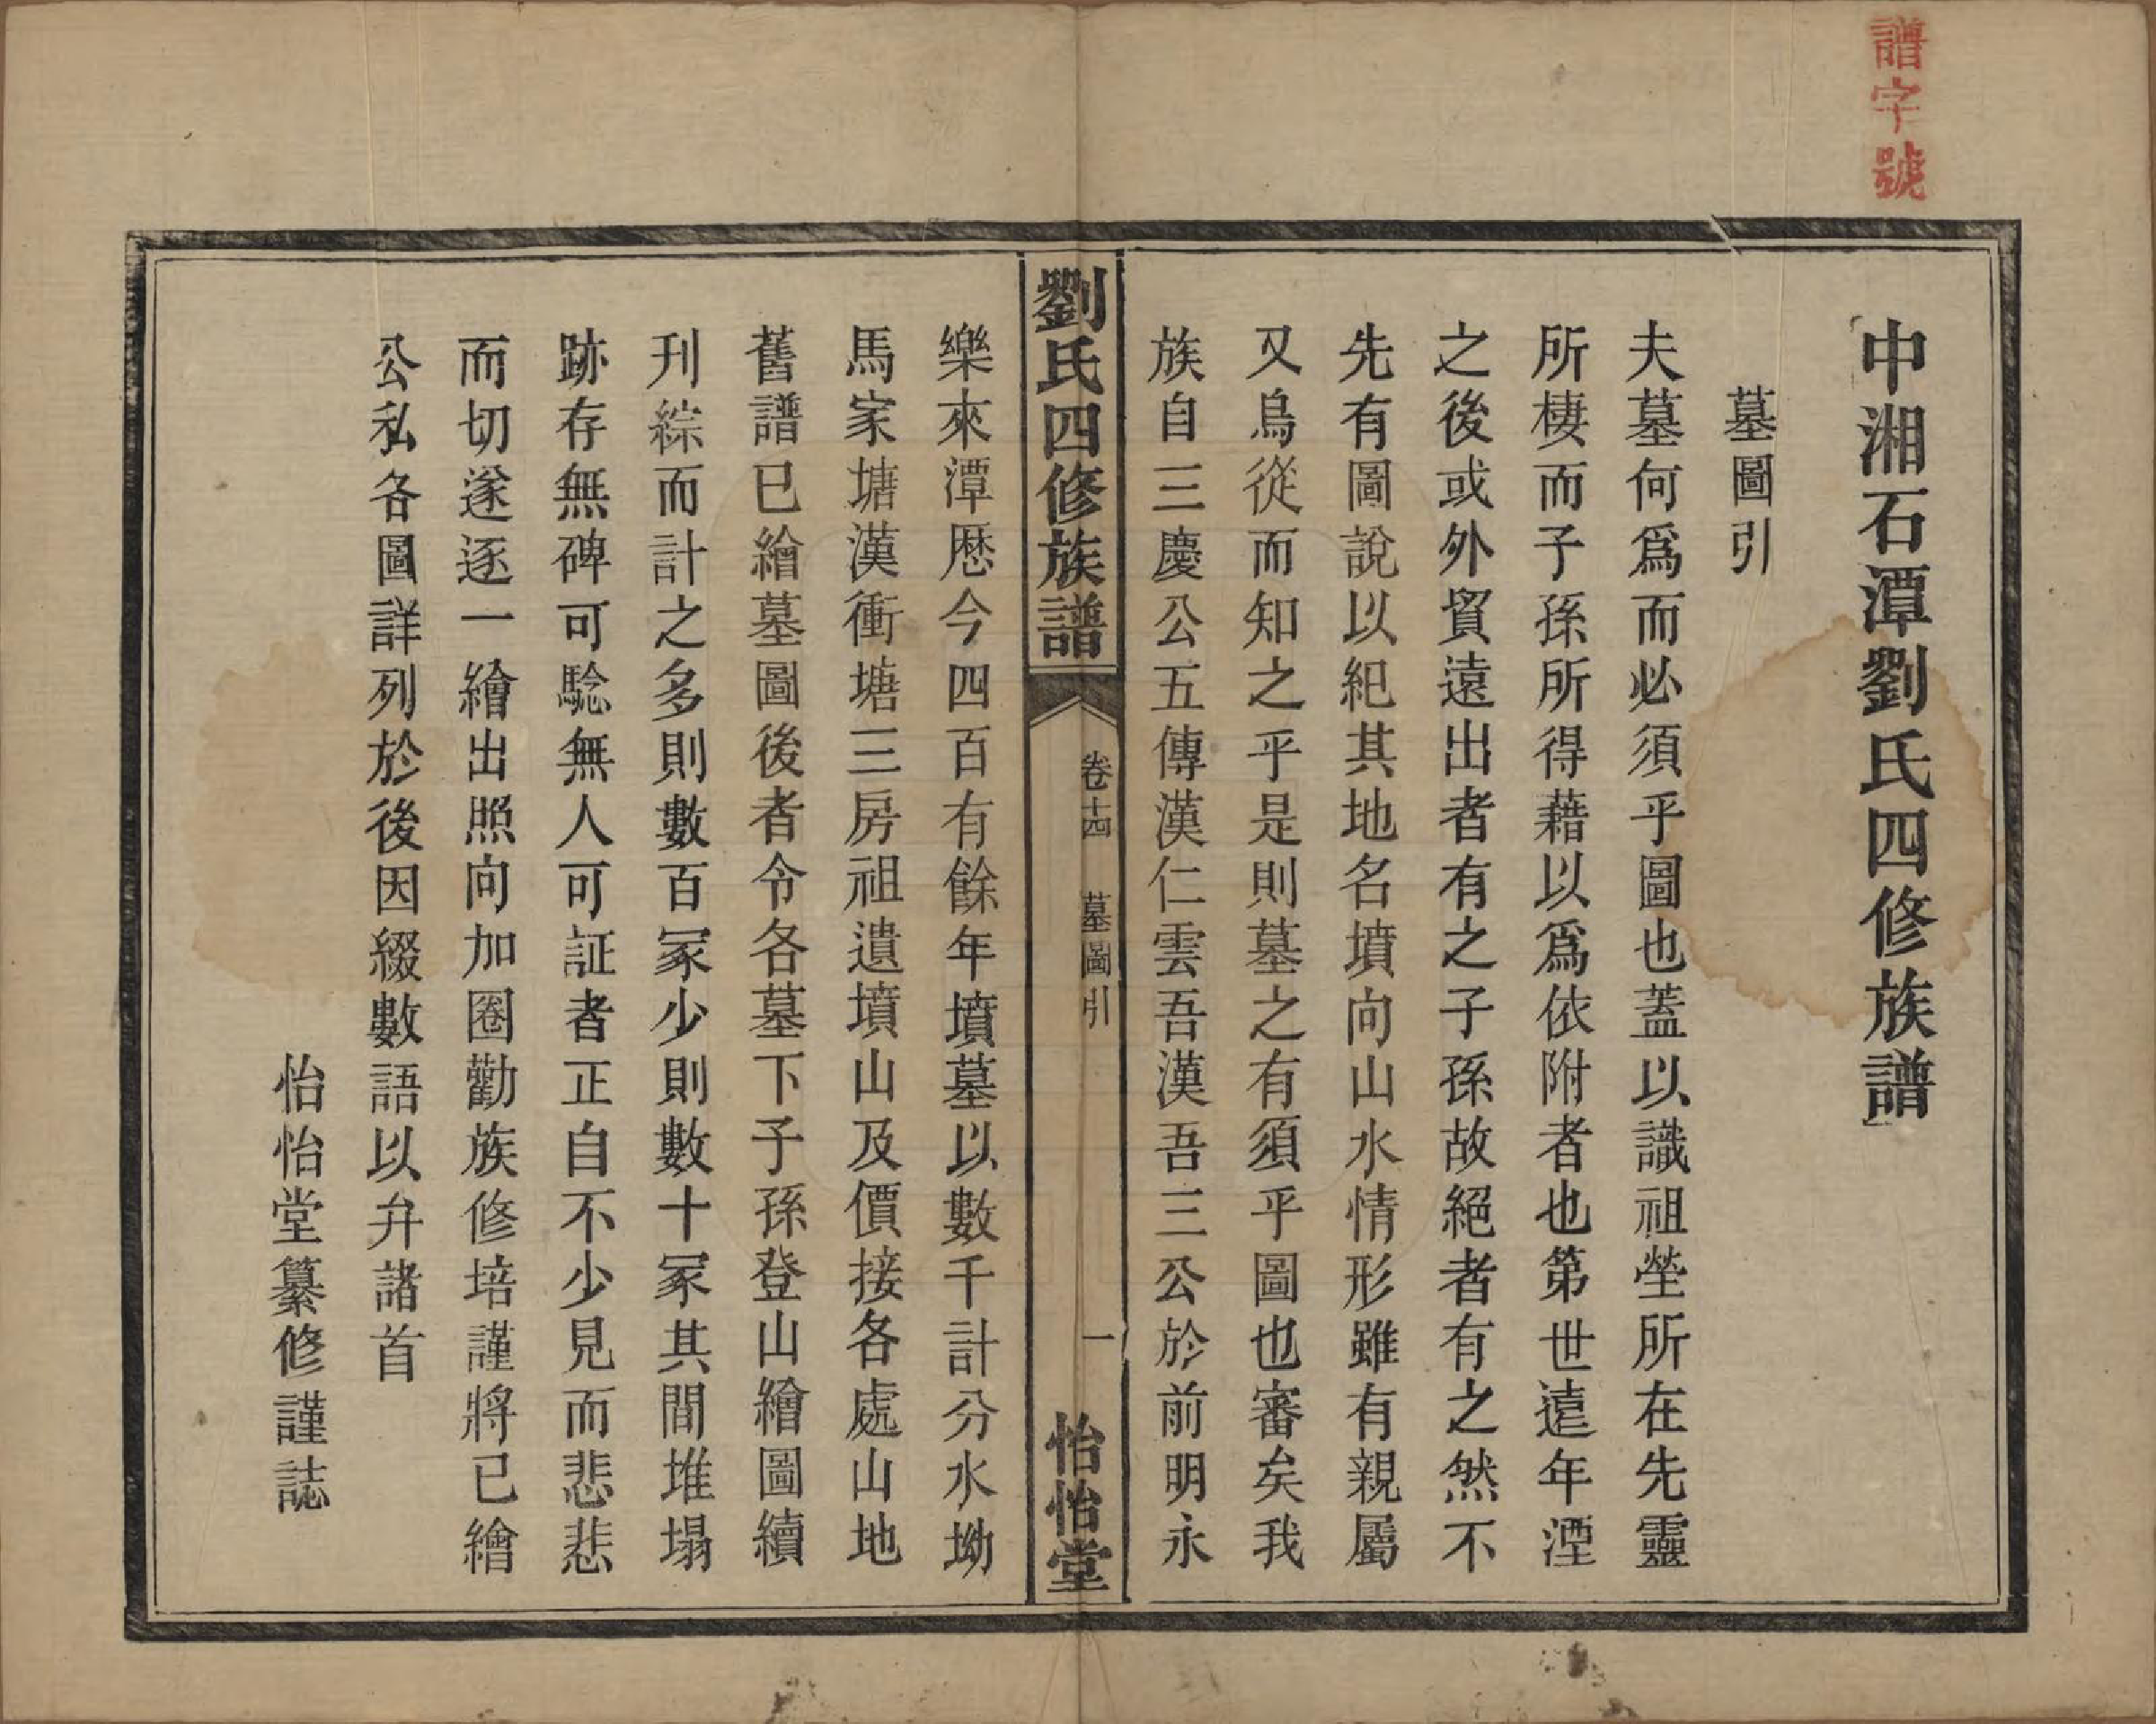 譜字號
中湘石潭劉氏四修族譜
墓圖引
夫墓何爲而必須乎圖也蓋以識祖塋所在先靈
所棲而子孫所得藉以爲依附者也第世遠年湮
之後或外貿遠出者有之子孫故絕者有之然不
先有圖說以紀其地名墳向山水情形雖有親屬
又烏從而知之乎是則墓之有須乎圖也審矣我
族自三慶公五傳漢仁雲吾漢吾三公於前明永
劉氏四修族譜
卷十四 墓圖引
一
怡怡堂
樂來潭歷今四百有餘年墳墓以數千計分水坳
馬家塘漢衝塘三房祖遺墳山及價接各處山地
舊譜已繪墓圖後者令各墓下子孫登山繪圖續
刊綜而計之多則數百冢少則數十冢其間堆塌
跡存無碑可騐無人可証者正自不少見而悲悲
而切遂逐一繪出照向加圈勸族修培謹將已繪
公私各圖詳列於後因綴數語以弁諸首
怡怡堂纂修謹誌